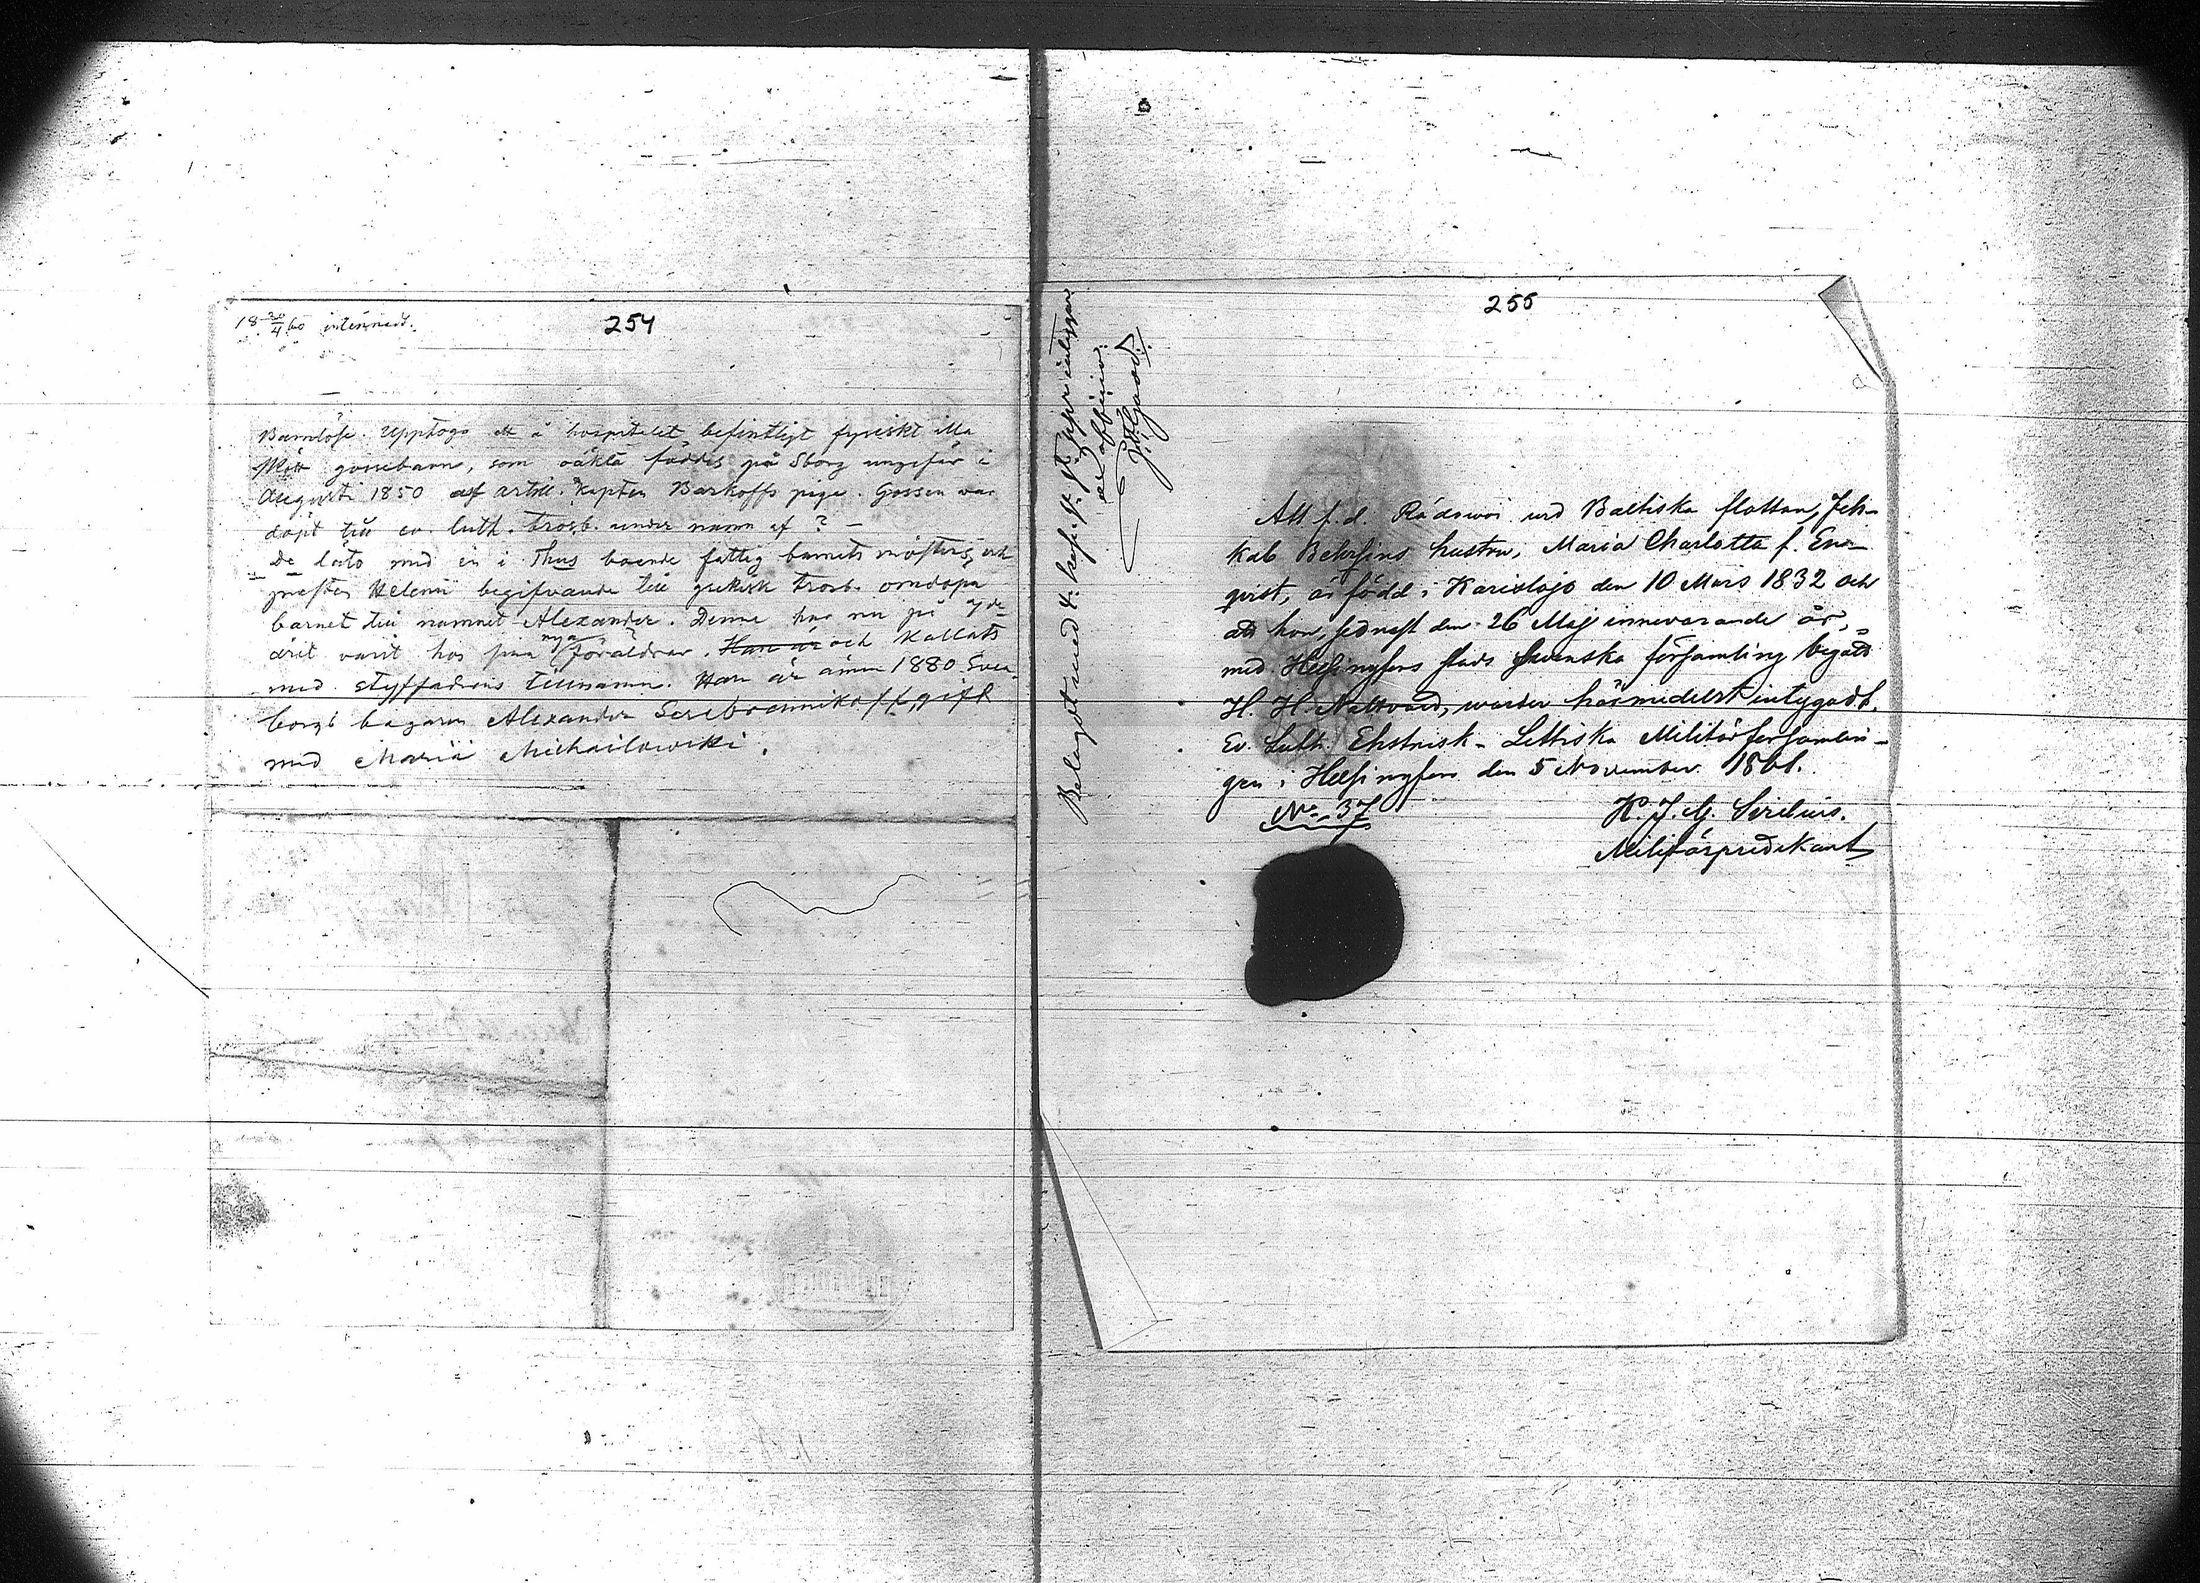 18 20/4 60
254
Barnlöse. Upptogo ett å hospitalet, befintligt fysiskt illa
skött gossebarn, som oäkta föddes på Sborg ungefär i
Augusti 1850 af artill. kapten Barkoffs piga. Gossen var
döpt till ev. luth. trosb. under namn af ? —
De läto med en i Thus boende fattig barnets moster och
prester Heleni begifvande till grekisk trosb. omdöpa
barnet till namnet Alexander. Denne har nu på 9de
året varit hos sina nya föräldrar. Han är och kallats
med styffadrens tillnamn. Han är ännu 1880 Svea-
borgs bagaren Alexander Serebrennikoff, gift
med Maria Michailowski.
255
Belagdt med 4. kop. st.
Att f. d. Rådswoi vid Baltiska flottan, Jeh-
kab Behrsins hustru, Maria Charlotta f. Eneqvist
qvist, är född i Karislojo den 10 Mars 1832 och
att hon, sednast den 26 Maj innevarande år,
med Helsingfors stads Svenska församling begått
H. H. Nattvard, warder härmedelst intygadt.
Ev. Luth. Ehstnisk-Lettiska Militärförsamlin-
gen i Helsingfors den 5 November 1861.
No. 37
K. J. G. Sirelius.
Militärpredikant